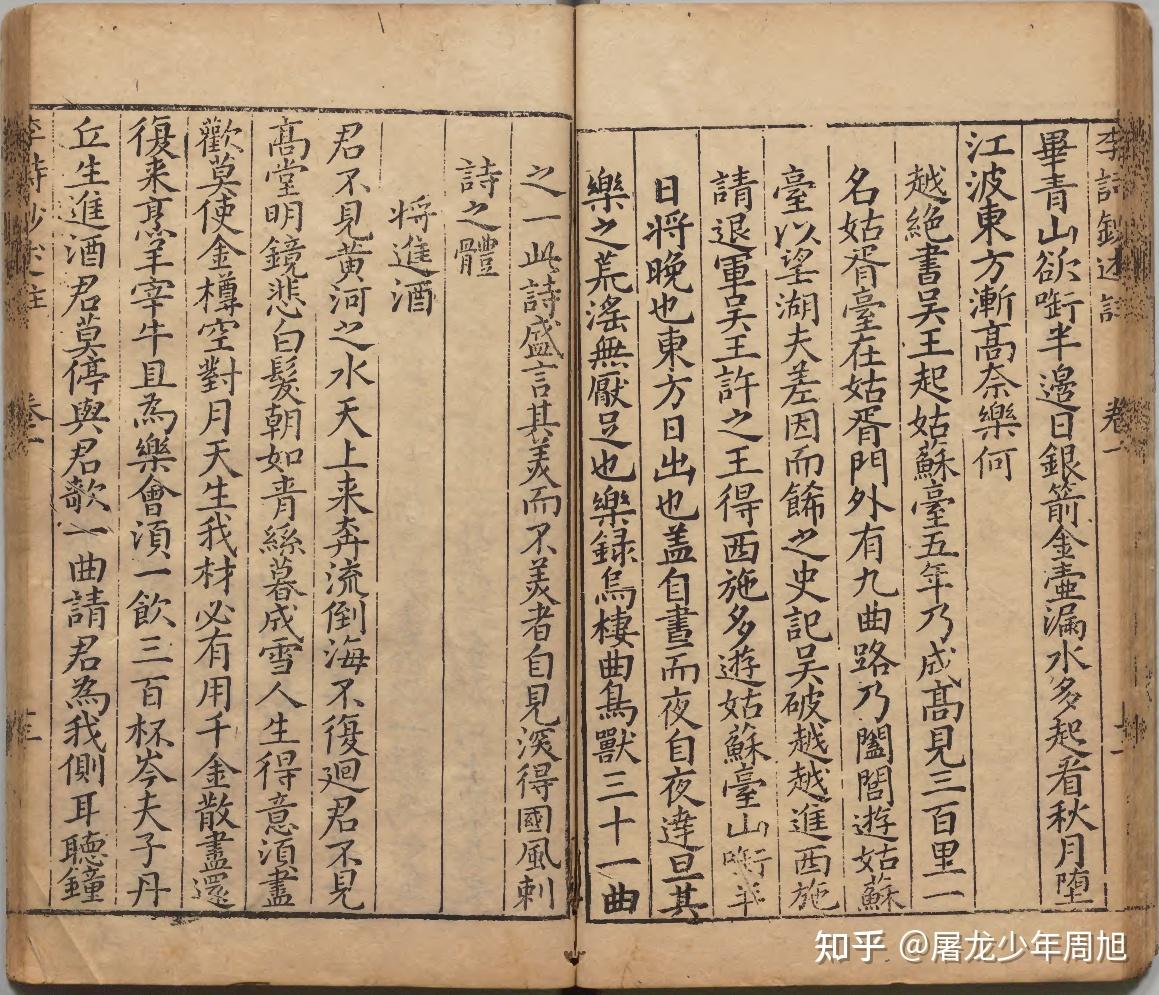 李詩鈔述註 卷一 十一
畢青山欲啣半邊日銀箭金壺漏水多起看秋月墮
江波東方漸髙奈樂何
越絶書吴王起姑蘇臺五年乃成髙見三百里一
名姑胥臺在姑胥門外有九曲路乃闔閭遊姑蘇
臺以望湖夫差因而餙之史記吴破越越進西施
請退軍吴王許之王得西施多遊姑蘇臺山啣半
日将晚也東方日出也盖自晝而夜自夜達旦其
樂之荒滛無厭足也樂録烏棲曲鳥獸三十一曲
之一此詩盛言其美而不美者自見深得國風刺
詩之體
将進酒
君不見黄河之水天上来奔流倒海不復廻君不見
髙堂明鏡悲白髮朝如青絲暮成雪人生得意湏盡
歡莫使金樽空對月天生我材必有用千金散盡還
復来烹羊宰牛且為樂會湏一飲三百杯岑夫子丹
丘生進酒君莫停與君歌一曲請君為我側耳聴鐘
李詩鈔述註 卷一
知乎 @屠龙少年周旭